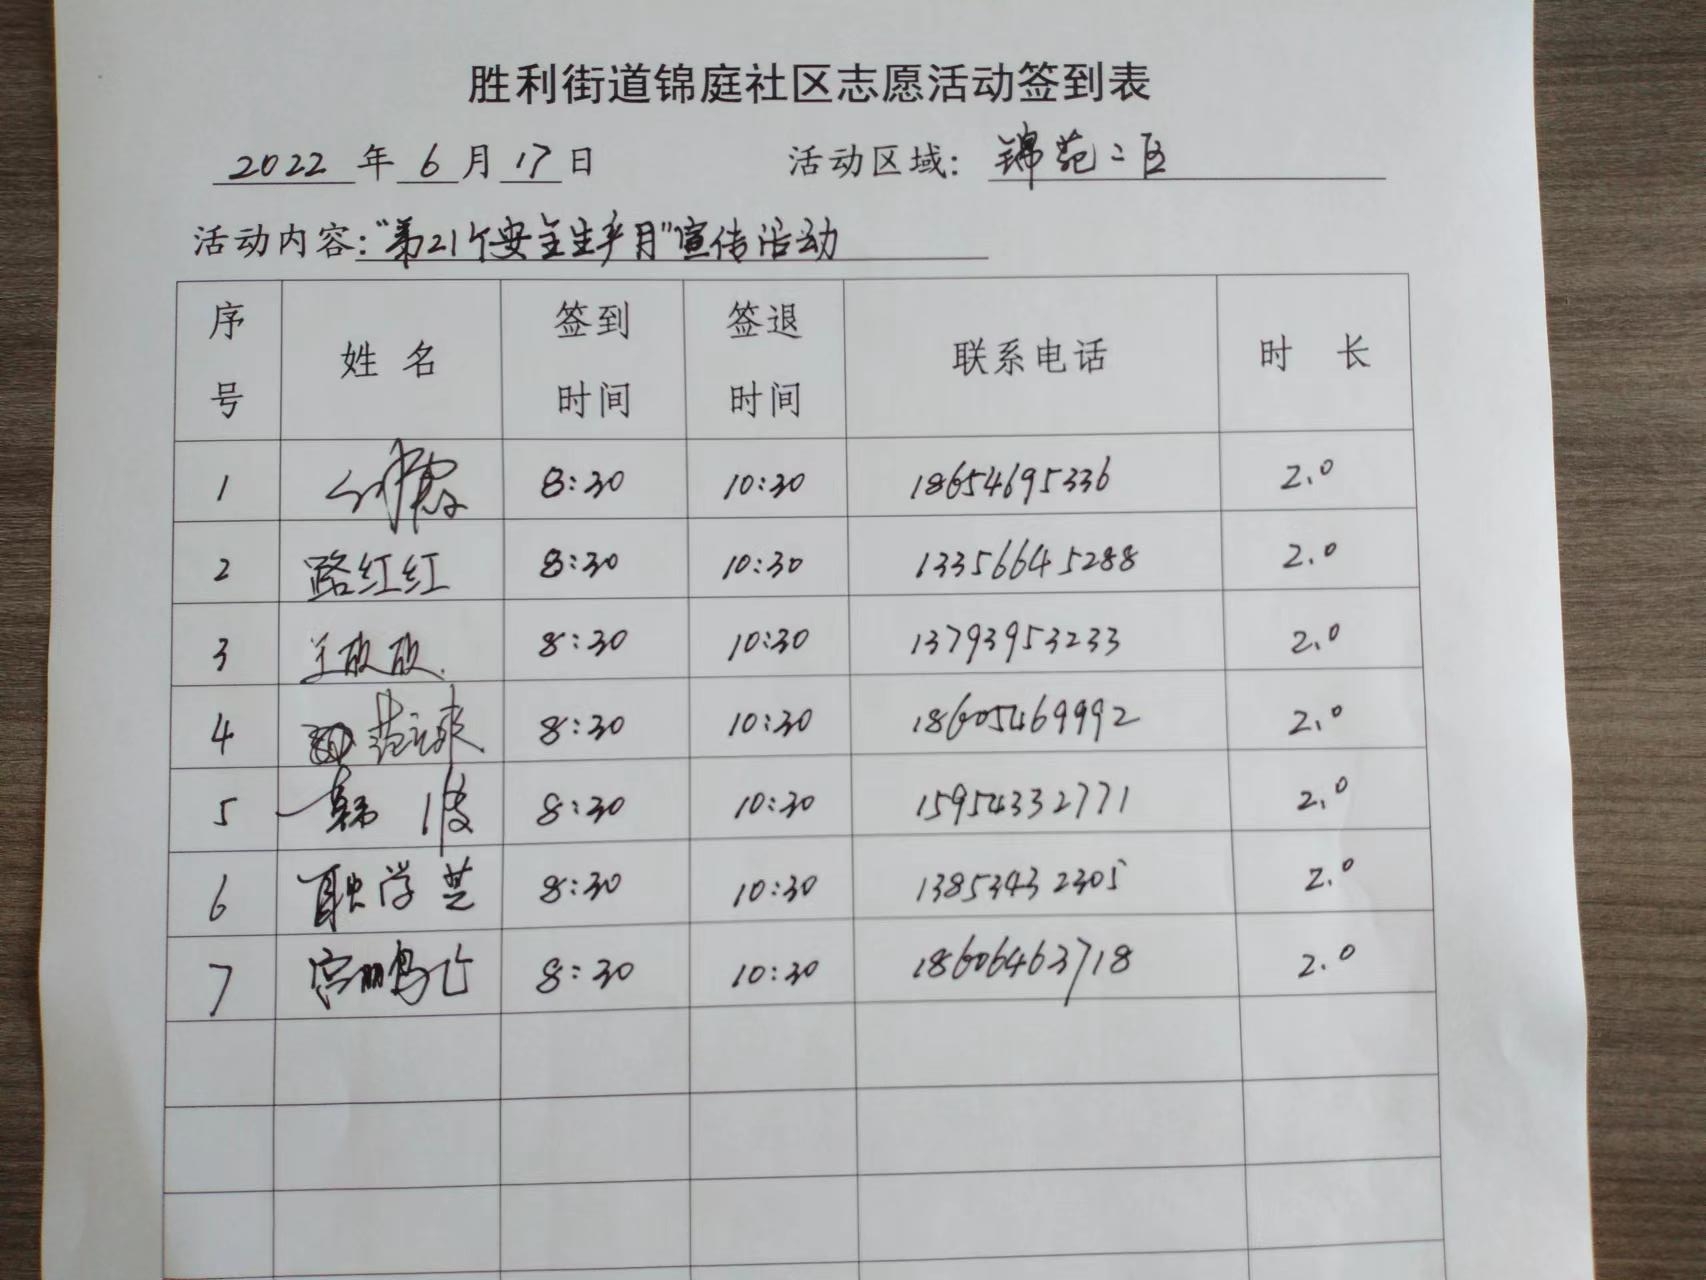 胜利街道锦庭社区志愿活动签到表
2022年6月17日 活动区域：锦苑二区
活动内容："第21个安全生产月"宣传活动
序号 姓名 签到时间 签退时间 联系电话 时长
1 8:30 10:30 18654695336 2.0
2 路红红 8:30 10:30 13356645288 2.0
3 8:30 10:30 13793953233 2.0
4 8:30 10:30 18605469992 2.0
5 韩波 8:30 10:30 15954332771 2.0
6 耿学芝 8:30 10:30 13853432305 2.0
7 宫鹏飞 8:30 10:30 18606463718 2.0